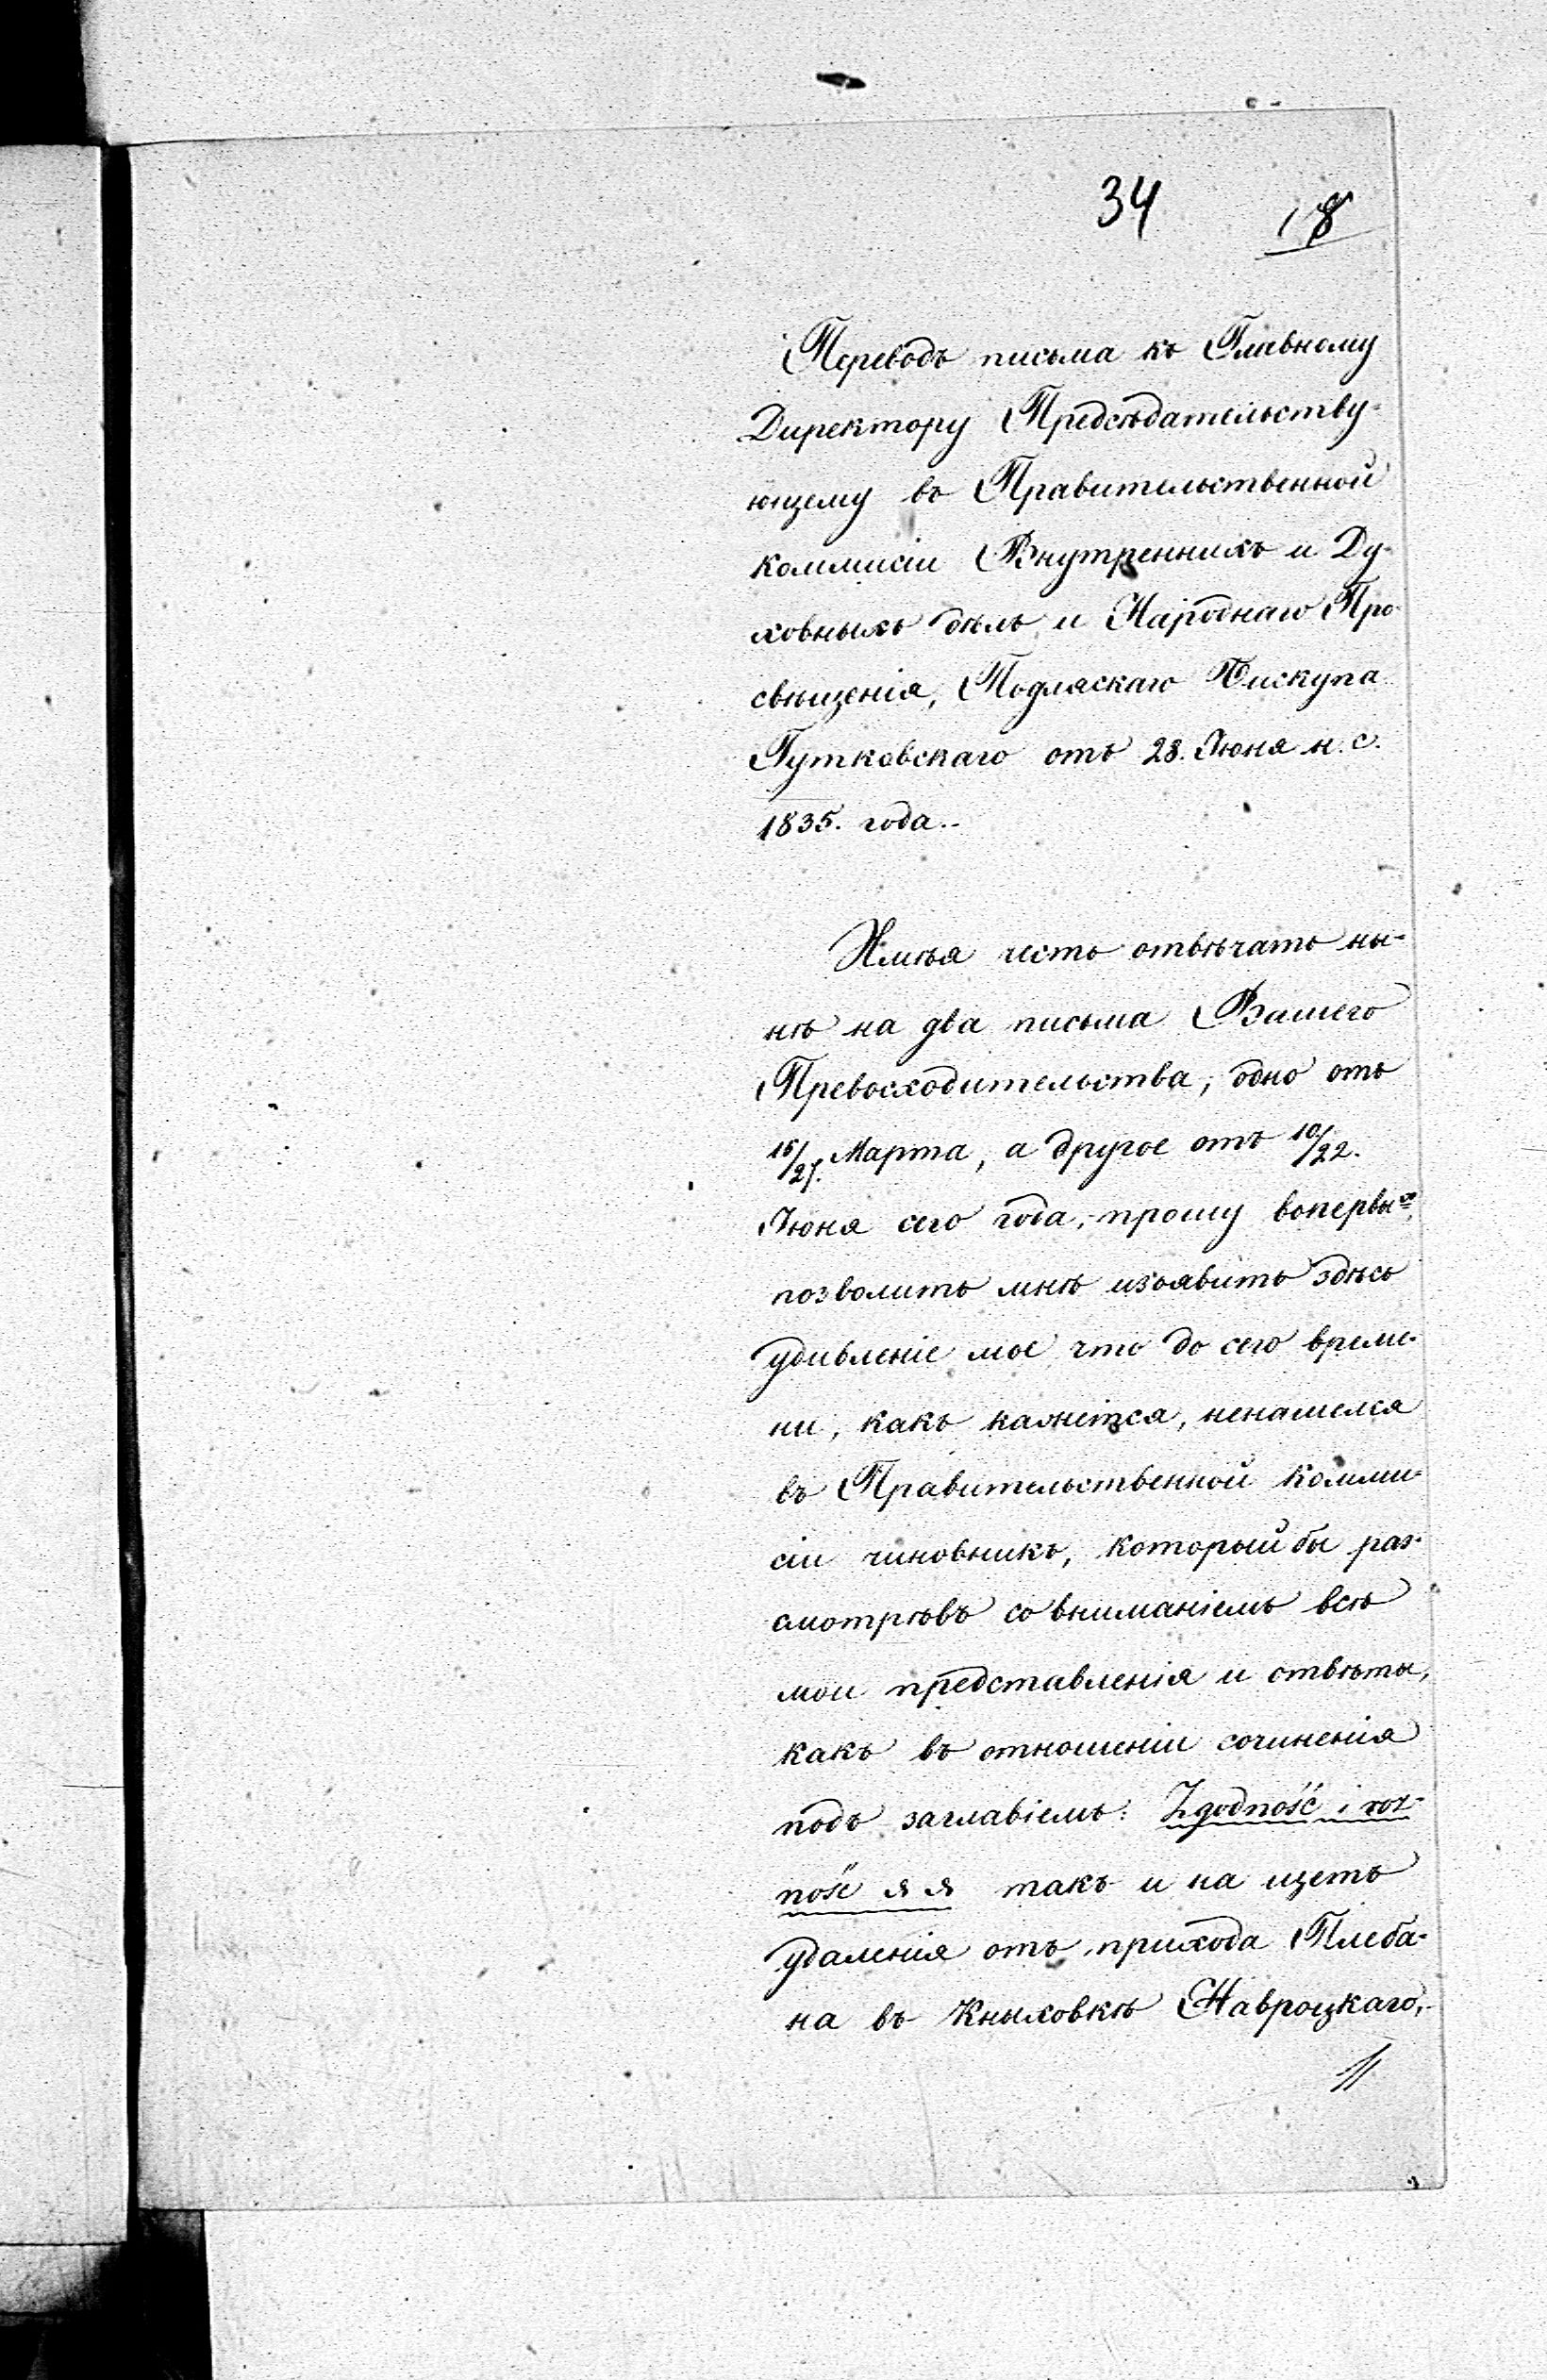 34
18
Переводъ письма къ Главному
Директору Предсѣдательству-
ющему въ Правительственной
коммисіи Внутреннихъ и Ду-
ховныхъ дѣлъ и Народнаго Про-
свѣщенія, Подляскаго Бискупа
Гутковскаго отъ 28. Іюня н. с.
1835. года.
Имѣя честь отвѣчать ны-
нѣ на два письма Вашего
Превосходительства, одно отъ
15/27. Марта, а другое отъ 10/22.
Іюня сего года, прошу вопервыхъ,
позволить мнѣ изъявить здѣсь
удивленіе мое что до сего време-
ни, какъ кажется, ненашелся
въ Правительственной комми-
сіи чиновникъ, который бы раз-
смотрѣвъ со вниманіемъ всѣ
мои представленія и отвѣты,
какъ въ отношеніи сочиненія
подъ заглавіемъ: Zgodność i roż-
ność такъ и на щетъ
удаленія отъ прихода Плеба-
на въ Кныховкѣ Навроцкаго,